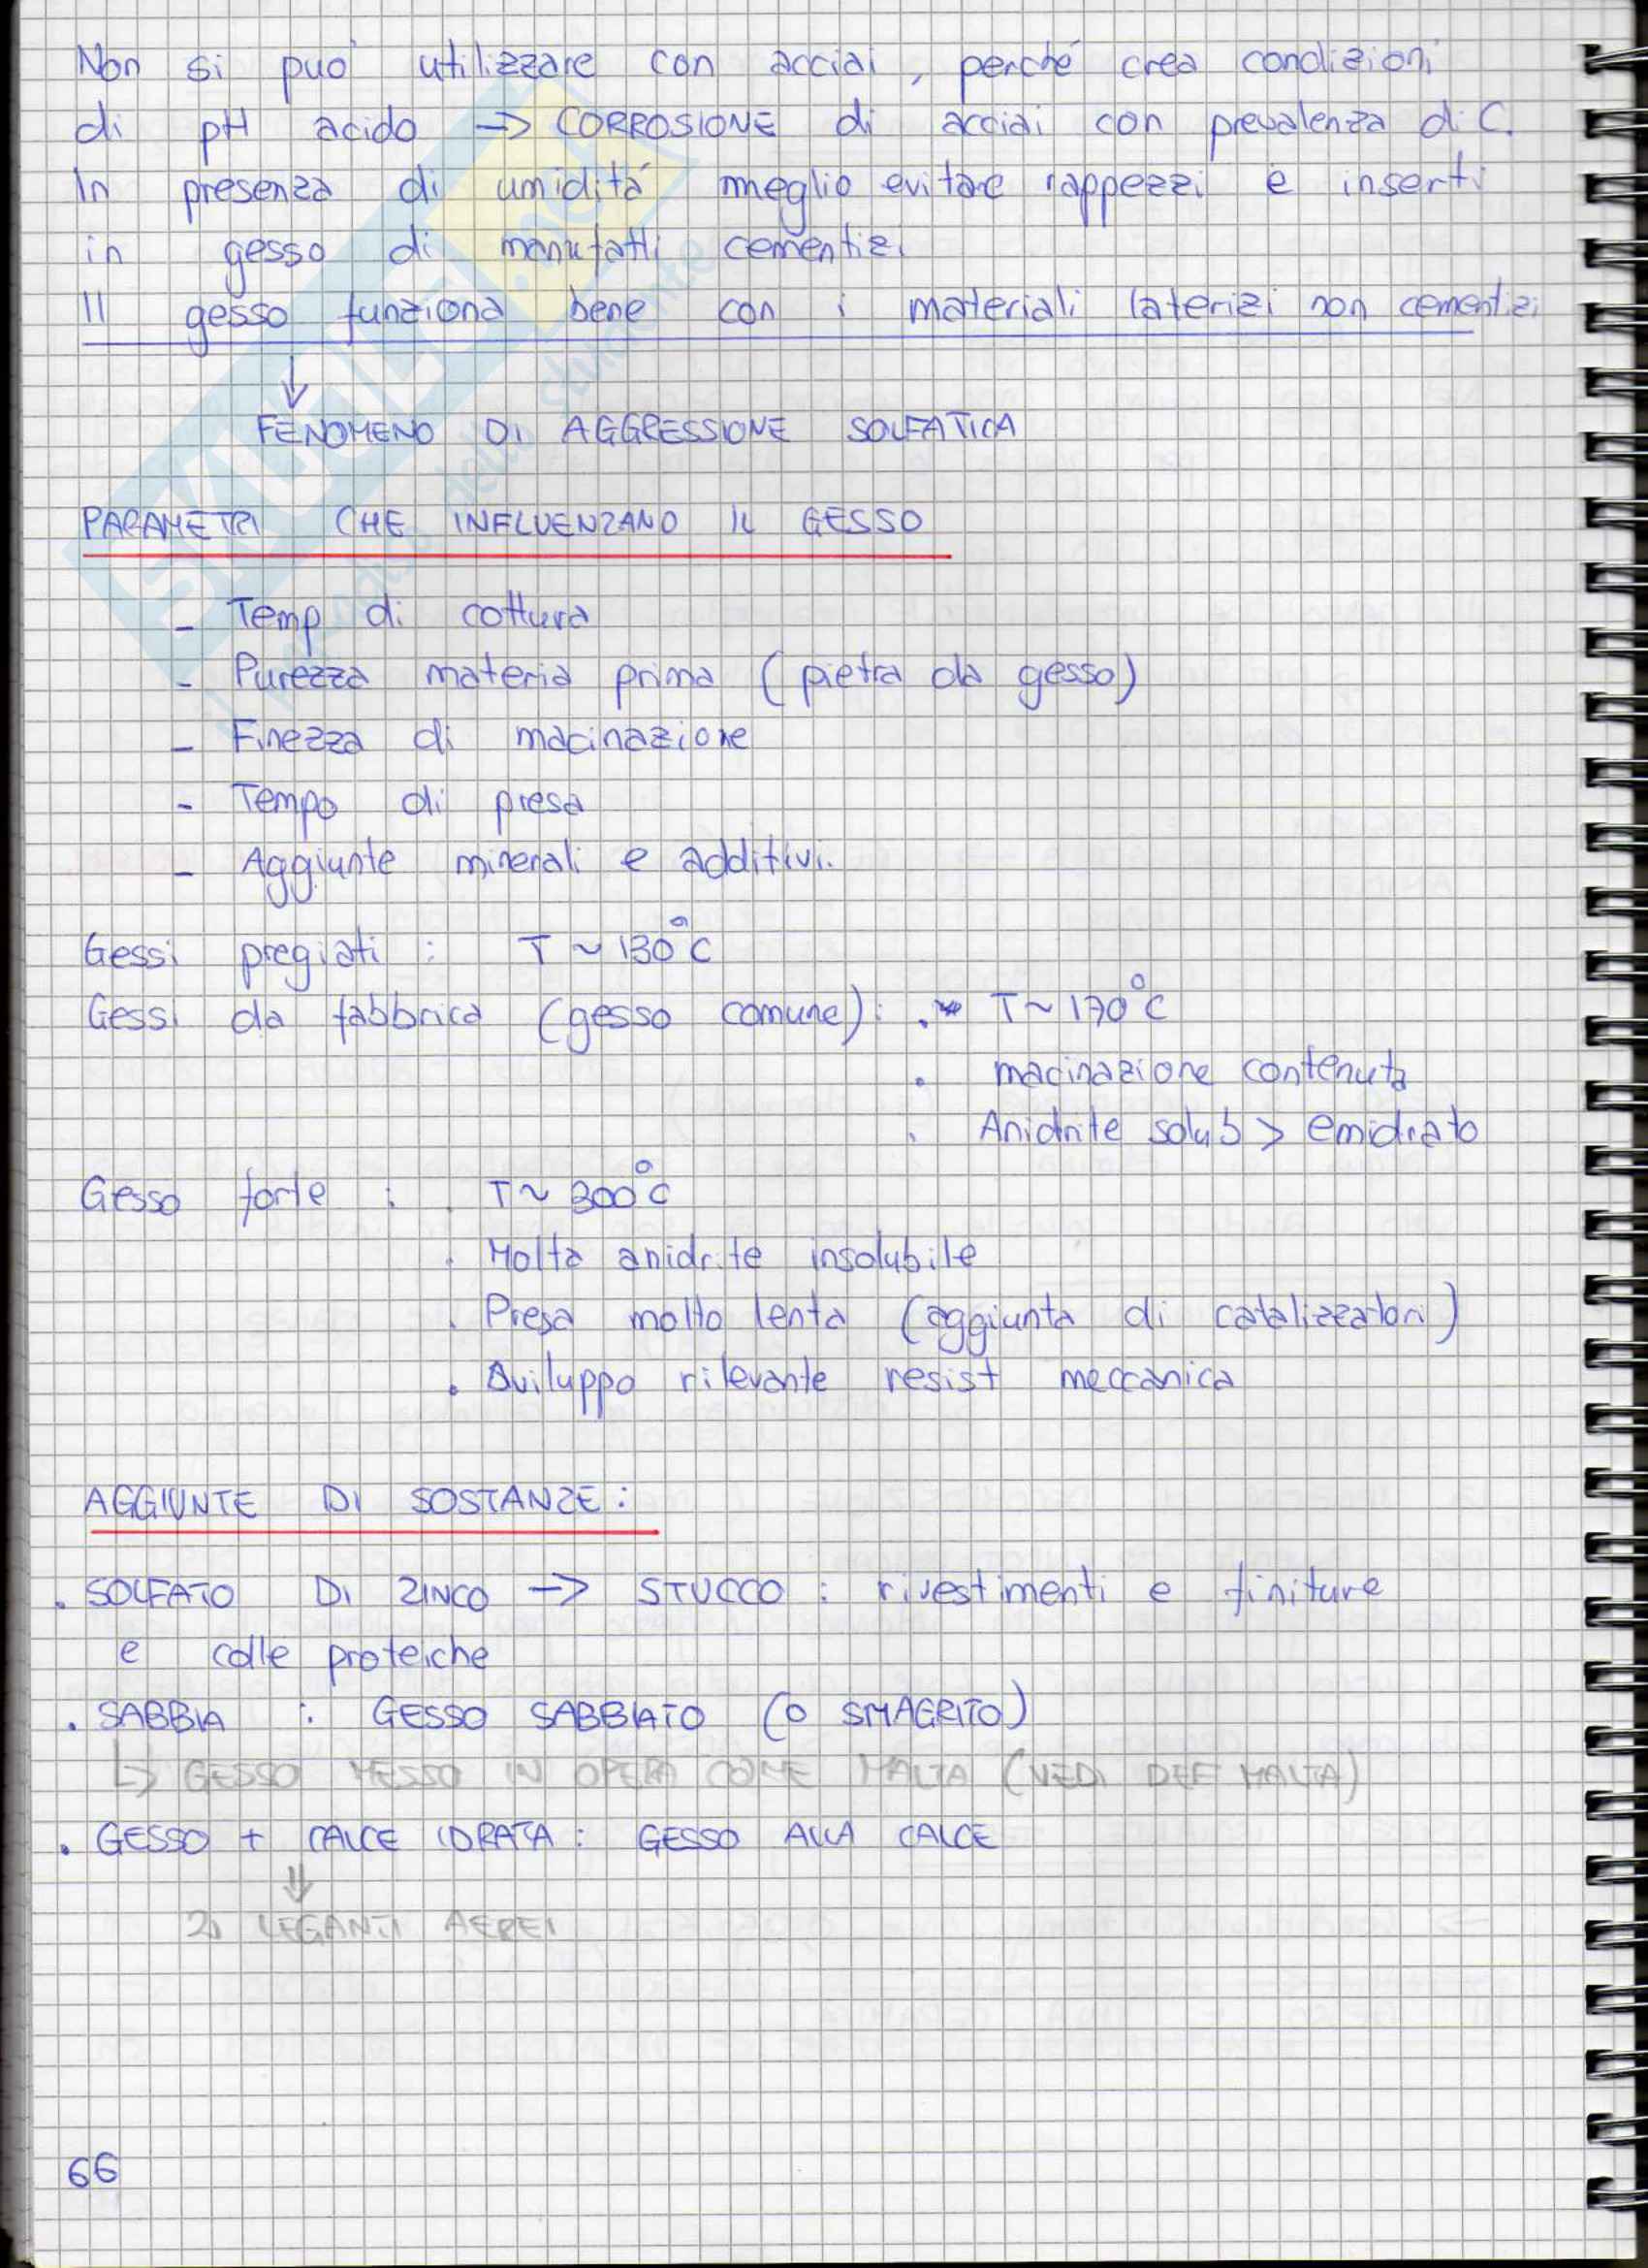 Non si può utilizzare con acciai, perché crea condizioni
di pH acido -> CORROSIONE di acciai con prevalenza di C.
In presenza di umidità meglio evitare rappezzi e inserti
in gesso di manufatti cementizi
Il gesso funziona bene con i materiali laterizi non cementizi
↓
FENOMENO DI AGGRESSIONE SOLFATICA
PARAMETRI CHE INFLUENZANO IL GESSO
- Temp di cottura
- Purezza materia prima (pietra da gesso)
- Finezza di macinazione
- Tempo di presa
- Aggiunte minerali e additivi.
Gessi pregiati : T ~ 130°C
Gessi da fabbrica (gesso comune): . T ~ 170°C
. macinazione contenuta
. Anidrite solub > emidrato
Gesso forte : . T ~ 300°C
. Molta anidrite insolubile
. Presa molto lenta (aggiunta di catalizzatori)
. Sviluppo rilevante resist meccanica
AGGIUNTE DI SOSTANZE :
. SOLFATO DI ZINCO -> STUCCO : rivestimenti e finiture
e colle proteiche
. SABBIA : GESSO SABBIATO (O SMAGRITO)
↳ GESSO MESSO IN OPERA COME MALTA (VEDI DEF MALTA)
. GESSO + CALCE IDRATA : GESSO ALLA CALCE
⇓
2 LEGANTI AEREI
66
SKUOLA.net